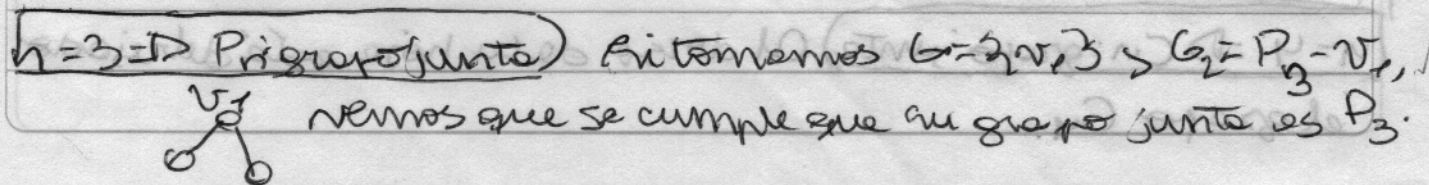 n=3 ⇒ P₃ grafo junta) Si tomamos G={v₁}, G₂ = P₃-v₁,
v₁ vemos que se cumple que su grafo junta es P₃.